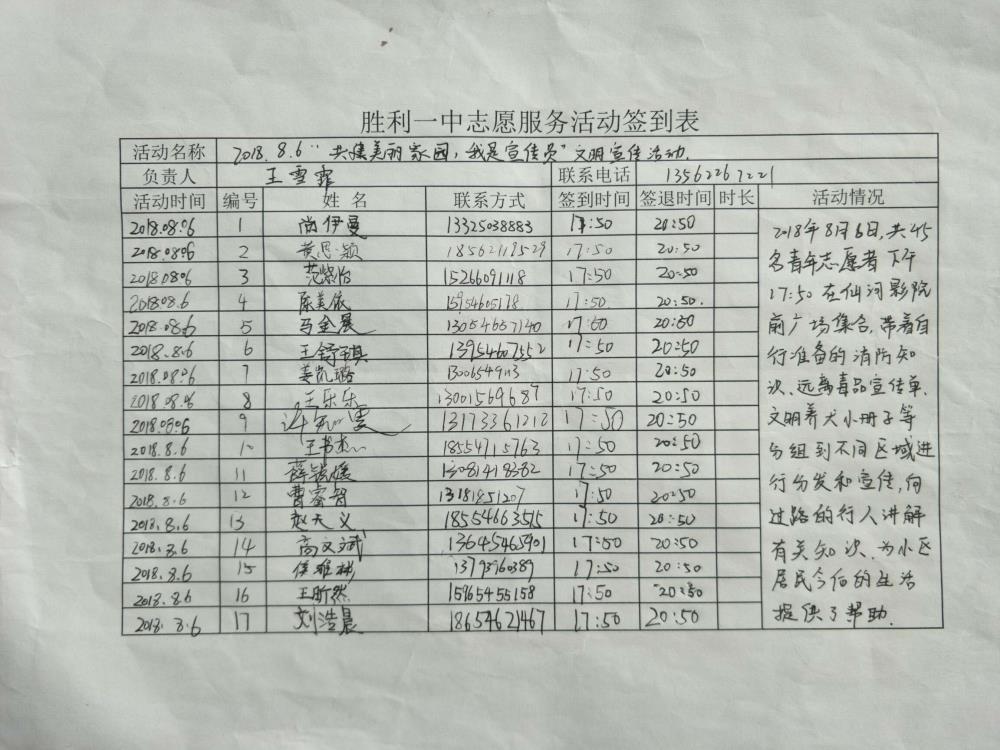 胜利一中志愿服务活动签到表
活动名称 2018.8.6"共建美丽家园，我是宣传员"文明宣传活动.
负责人 王雪霏 联系电话 13562267221
活动时间 编号 姓名 联系方式 签到时间 签退时间 时长 活动情况
2018.08.06 1 尚伊曼 13325038883 17:50 20:50
2018.0806 2 黄思颖 18562119529 17:50 20:50
2018.0806 3 范紫怡 15266091118 17:50 20:50
2018.08.6 4 陈美依 15954605178 17:50 20:50.
2018.08.6 5 马金晨 13054657140 17:50 20:50
2018.8.6 6 王舒琪 13954607552 17:50 20:50
2018.08.06 7 姜凯璐 17:50 20:50
2018.08.06 8 王乐乐 13001569687 17:50 20:50
2018.0806 9 13173361212 17:50 20:50
2018.8.6 10 王书杰 18554715763 17:50 20:50
2018.8.6 11 13081418382 17:50 20:50
2018.8.6 12 曹睿智 13181851207 17:50 20:50
2018.8.6 13 赵天义 18554663515 17:50 20:50
2018.8.6 14 高文斌 13645465901 17:50 20:50
2018.8.6 15 17:50 20:50
2018.8.6 16 王昕然 15965455158 17:50 20:50
2018.8.6 17 刘浩晨 18654621467 17:50 20:50
2018年8月6日,共45
名青年志愿者下午
17:50在仙河影院
前广场集合,带着自
行准备的消防知
识、远离毒品宣传单.
文明养犬小册子等
分组到不同区域进
行分发和宣传,向
过路的行人讲解
有关知识.为小区
居民今后的生活
提供了帮助.